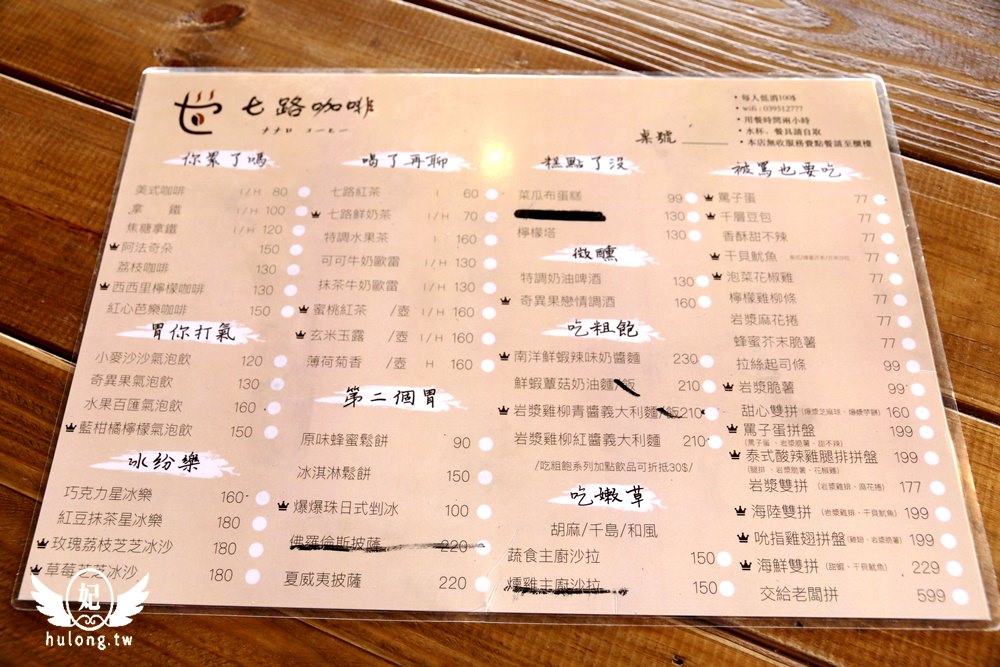 七路咖啡
ナナロ コーヒー
• 每人低消100$
• wifi : 039512777
• 用餐時間兩小時
• 水杯、餐具請自取
• 本店無收服務費點餐請至櫃檯
桌號
你累了嗎
美式咖啡 I/H 80
拿 鐵 I/H 100
焦糖拿鐵 I/H 120
阿法奇朵 150
荔枝咖啡 130
西西里檸檬咖啡 130
紅心芭樂咖啡 150
胃你打氣
小麥沙沙氣泡飲 120
奇異果氣泡飲 130
水果百匯氣泡飲 160
藍柑橘檸檬氣泡飲 150
冰紛樂
巧克力星冰樂 160
紅豆抹茶星冰樂 180
玫瑰荔枝芝芝冰沙 180
草莓芝芝冰沙 180
喝了再聊
七路紅茶 I 60
七路鮮奶茶 I/H 70
特調水果茶 I 160
可可牛奶歐雷 I/H 130
抹茶牛奶歐雷 I/H 130
蜜桃紅茶 /壺 I/H 160
玄米玉露 /壺 I/H 160
薄荷菊香 /壺 H 160
第二個胃
原味蜂蜜鬆餅 90
冰淇淋鬆餅 150
爆爆珠日式剉冰 100
佛羅倫斯披薩 220
夏威夷披薩 220
糕點了沒
菜瓜布蛋糕 99
130
檸檬塔 130
微醺
特調奶油啤酒 130
奇異果戀情調酒 160
吃粗飽
南洋鮮蝦辣味奶醬麵 230
鮮蝦蕈菇奶油麵/飯 210
岩漿雞柳青醬義大利麵/飯 210
岩漿雞柳紅醬義大利麵 210
/吃粗飽系列加點飲品可折抵30$/
吃嫩草
胡麻/千島/和風
蔬食主廚沙拉 150
燻雞主廚沙拉 150
被罵也要吃
罵子蛋 77
千層豆包 77
香酥甜不辣 77
干貝魷魚 77
泡菜花椒雞 77
檸檬雞柳條 77
岩漿麻花捲 77
蜂蜜芥末脆薯 77
拉絲起司條 99
岩漿脆薯 99
甜心雙拼 (爆漿芝麻球、爆糖芋餅) 160
罵子蛋拼盤 199
(罵子蛋、岩漿脆薯、甜不辣)
泰式酸辣雞腿排拼盤 199
(腿排、岩漿脆薯、花椒雞)
岩漿雙拼 (岩漿雞排、麻花捲) 177
海陸雙拼 (岩漿雞排、干貝魷魚) 199
吮指雞翅拼盤 (雞翅、岩漿脆薯) 199
海鮮雙拼 (甜蝦、干貝魷魚) 229
交給老闆拼 599
妃
hulong.tw